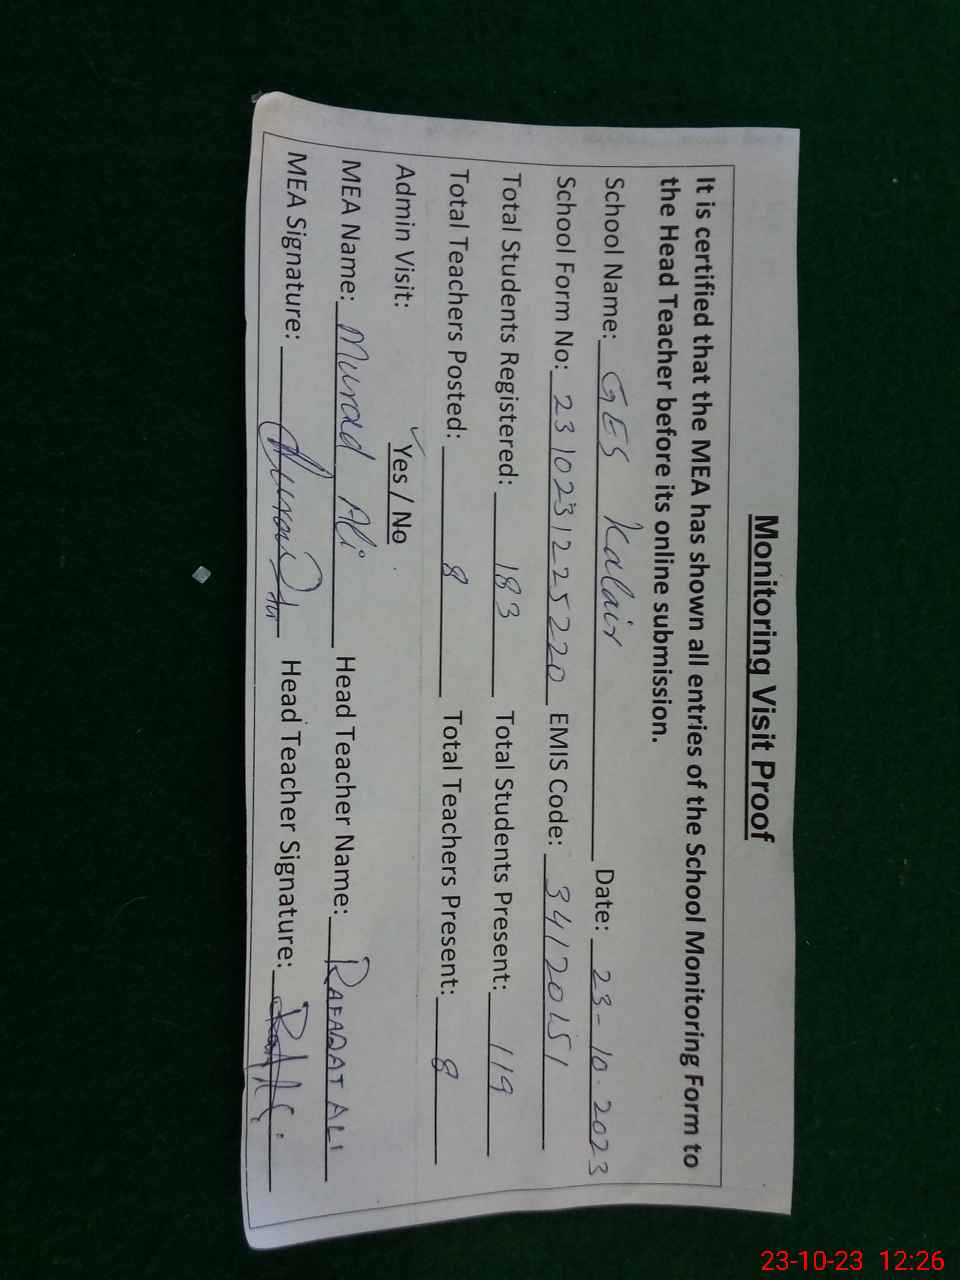 Monitoring Visit Proof
It is certified that the MEA has shown all entries of the School Monitoring Form to
the Head Teacher before its online submission.
School Name: GES Kalair Date: 23-10-2023
School Form No: 2310231225220 EMIS Code: 34120151
Total Students Registered: 183 Total Students Present: 119
Total Teachers Posted: 8 Total Teachers Present: 8
Admin Visit: ✓ Yes / No
MEA Name: Murad Ali Head Teacher Name: RAFAQAT ALI
MEA Signature: Head Teacher Signature:
23-10-23 12:26